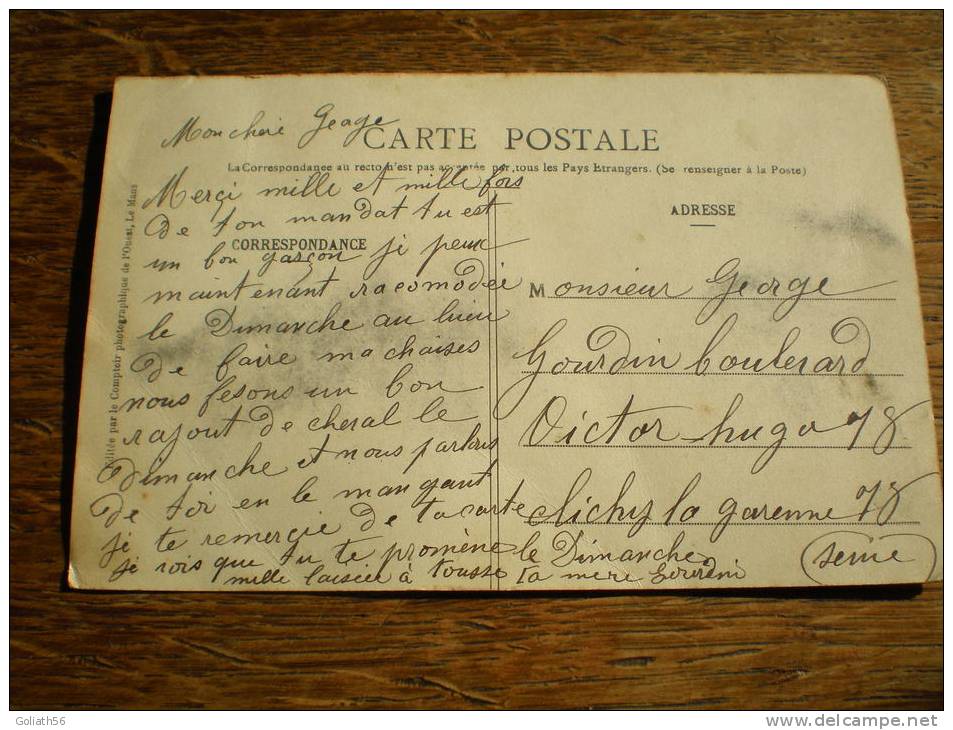 Mon cheré Geage
CARTE POSTALE
La Correspondance au recto n'est pas acceptée par tous les Pays Etrangers. (Se renseigner à la Poste)
Merçi mille et mille fors
de ton mandat tu est
CORRESPONDANCE
un bon garçon je peux
maintenant racomodée
le Dimanche au lieu
de faire ma chaises
nous fesons un bon
rajout de cheral le
dimanche et nous parlons
de toi en le mangant
je te remerçie de ta carte
je vois que tu te promène le Dimanche
mille baisées à tousse ta mère Gourdin
ADRESSE
Monsieur George
Gourdin boulevard
Victor hugo 78
Clichy la garenne 78
(seine)
Editée par le Comptoir photographique de l'Ouest, Le Mans
Goliath56
www.delcampe.net